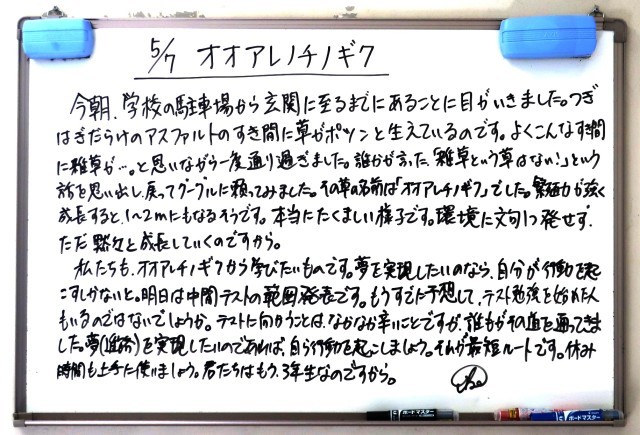 5/7 オオアレノチノギク
今朝、学校の駐車場から玄関に至るまでにあることに目がいきました。つぎ
はぎだらけのアスファルトのすき間に草がポツンと生えているのです。よくこんなすき間
に雑草が…。と思いながら一度通り過ぎました。誰かが言った「雑草という草はない!」という
話を思い出し、戻ってグーグルに頼ってみました。その草の名前は「オオアレチノギク」でした。繁殖力が強く
成長すると、1〜2mにもなるそうです。本当にたくましい様子です。環境に文句1つ発せず、
ただ黙々と成長していくのですから。
私たちも、オオアレチノギクから学びたいものです。夢を実現したいのなら、自分が行動を起
こすしかないと。明日は中間テストの範囲発表です。もうすでに予想して、テスト勉強を始めた人
もいるのではないでしょうか。テストに向かうことは、なかなか辛いことですが、誰もがその道を通ってきま
した。夢(進路)を実現したいのであれば、自ら行動を起こしましょう。それが最短ルートです。休み
時間も上手に使いましょう。君たちはもう、3年生なのですから。
ボードマスター
ボードマスター